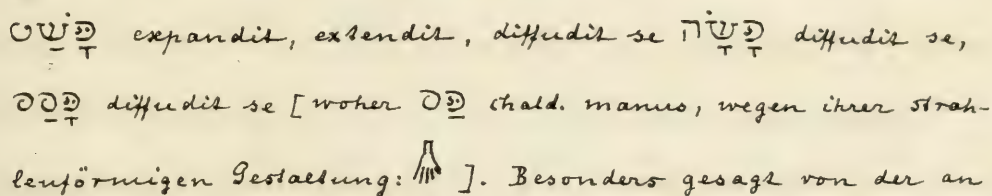 פָּשַׂט expandit, extendit, diffudit se פָּשָׂה diffudit se,
פָּסַס diffudit se [woher פַּס chald. manus, wegen ihrer strah-
lenförmigen Gestaltung: ]. Besonders gesagt von der an